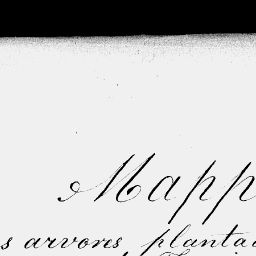 Mapp
s arvores, planta